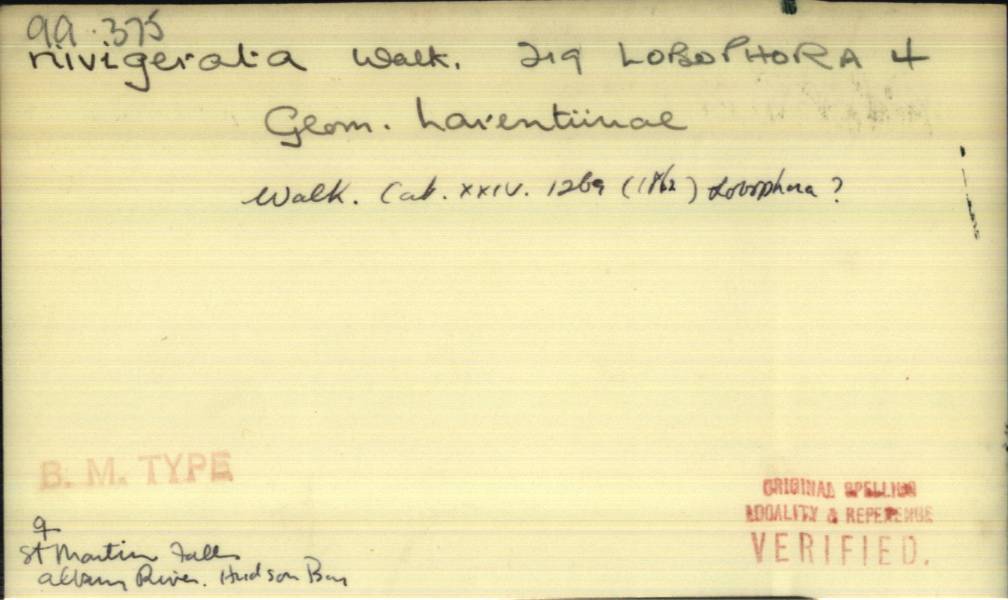 99.375
nivigerata Walk. 219 LOBOPHORA 4
Geom. Larentiinae
Walk. Cat. XXIV. 1269 (1862) Lobophora ?
B. M. TYPE
ORIGINAL SPELLING
LOCALITY & REFERENCE
VERIFIED.
♀
St Martin Falls
Albany River. Hudson Bay